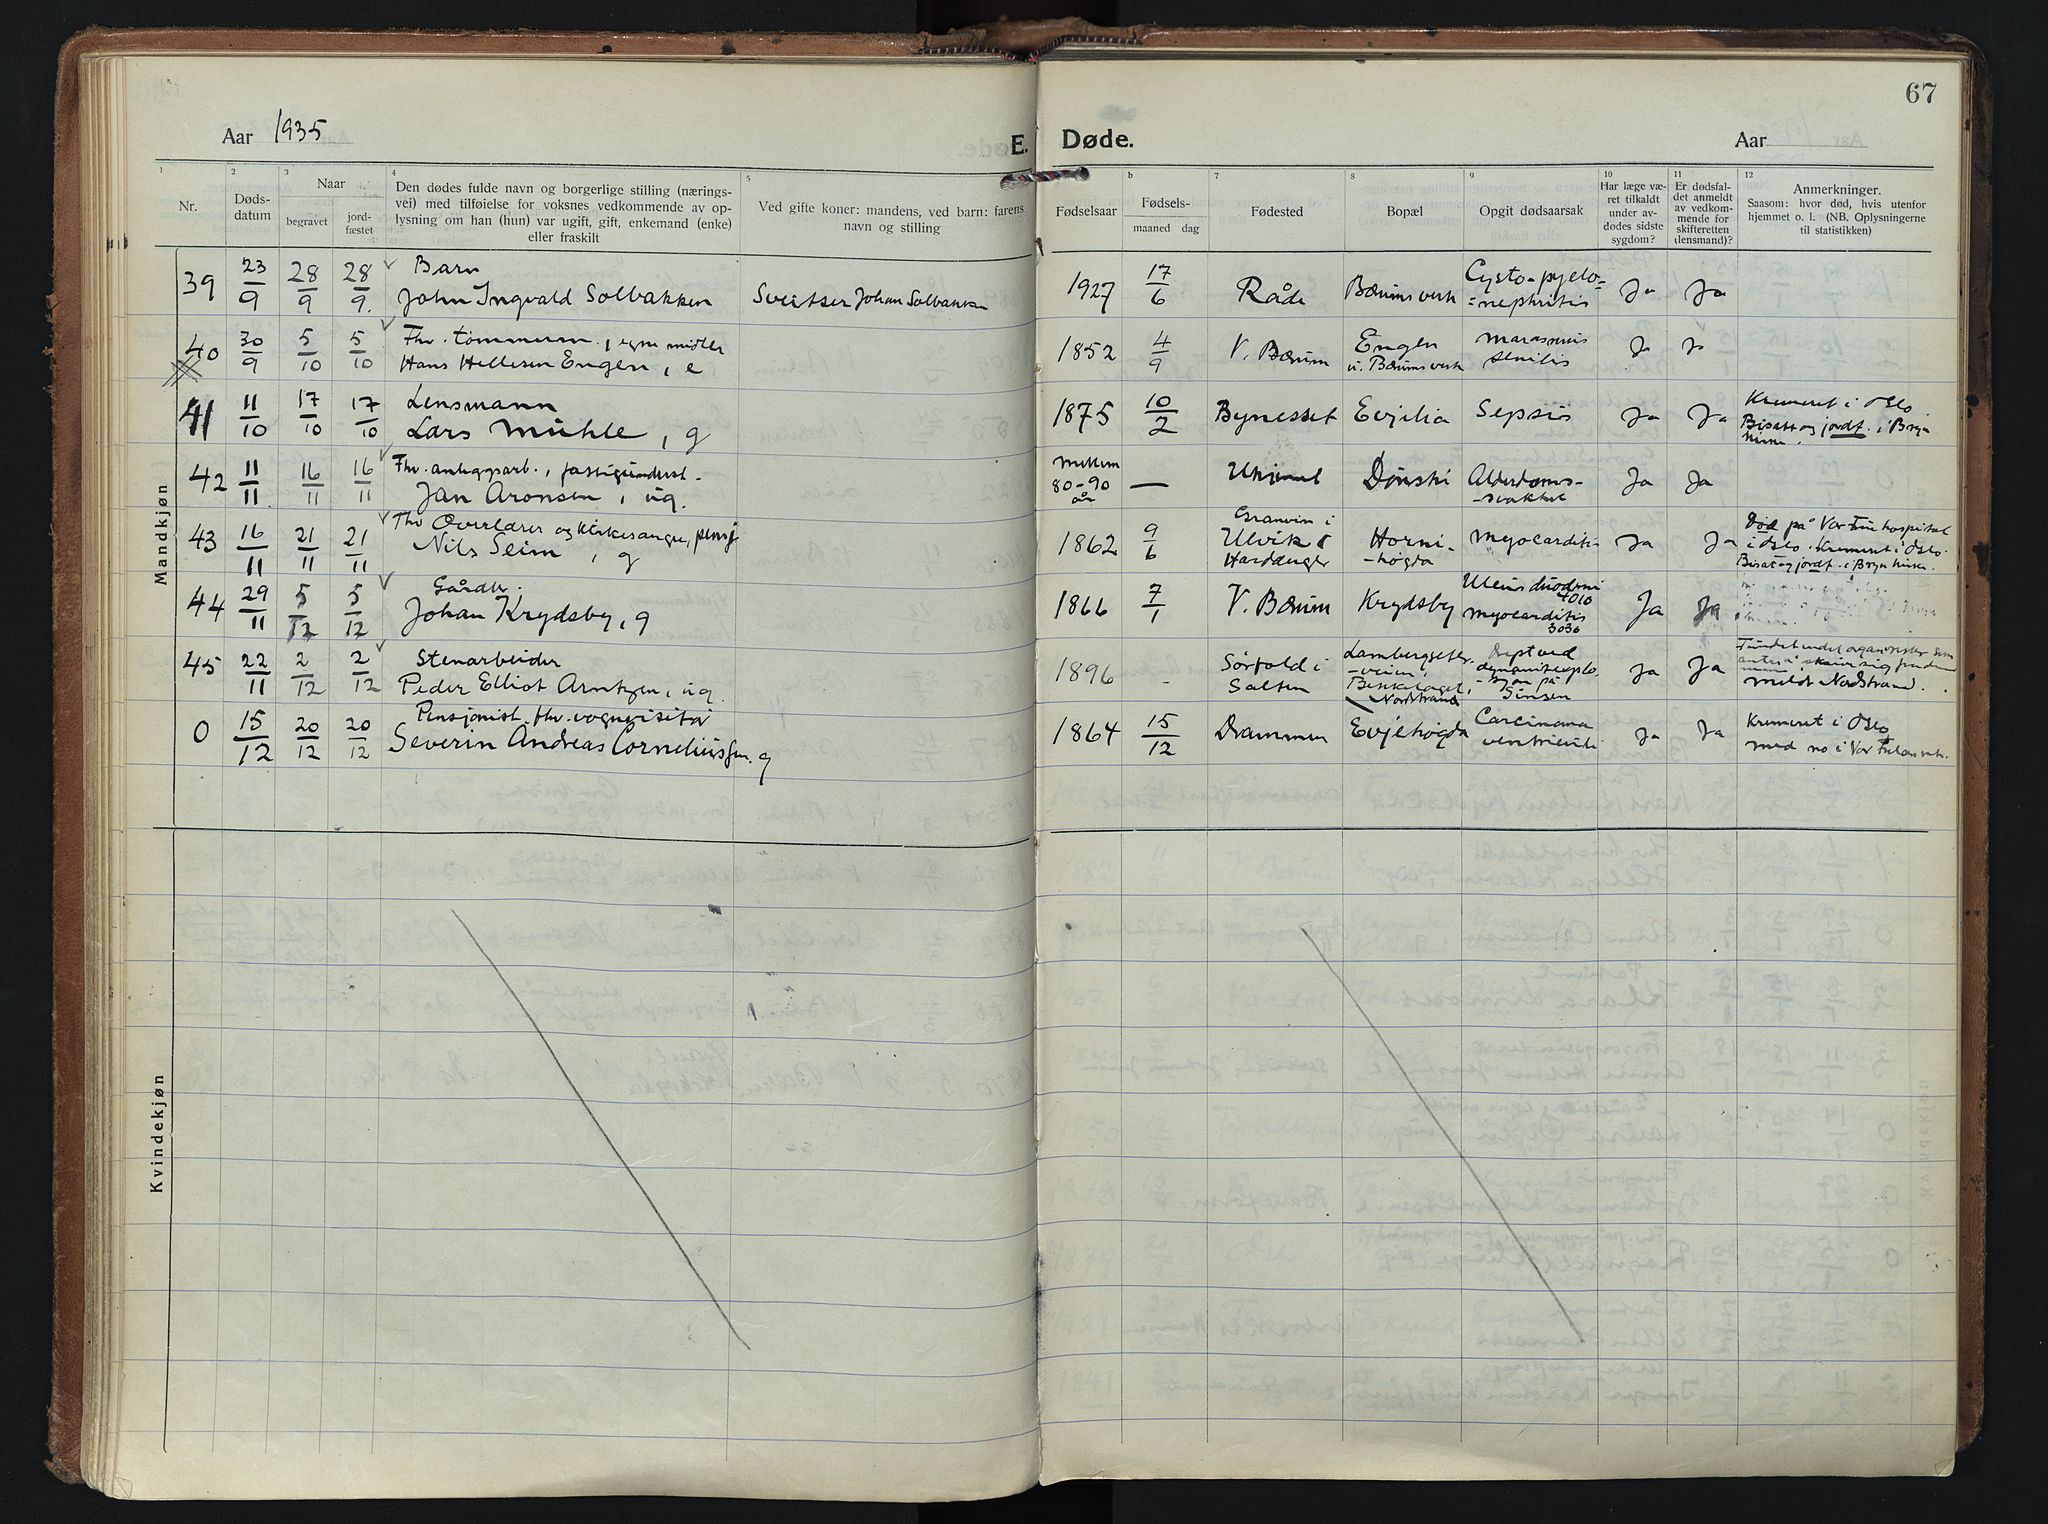 67
Aar 1935
E. Døde.
Aar
1 2 3 4 5 b 7 8 9 10 11 12
Nr.
Døds-
datum
Naar
begravet
jord-
fæstet
Den dødes fulde navn og borgerlige stilling (nærings-
vei) med tilføielse for voksnes vedkommende av op-
lysning om han (hun) var ugift, gift, enkemand (enke)
eller fraskilt
Ved gifte koner: mandens, ved barn: farens
navn og stilling
Fødselsaar
Fødsels-
maaned dag
Fødested
Bopæl
Opgit dødsaarsak
Har læge væ-
ret tilkaldt
under av-
dødes sidste
sygdom?
Er dødsfal-
det anmeldt
av vedkom-
mende for
skifteretten
(lensmand)?
Anmerkninger.
Saasom: hvor død, hvis utenfor
hjemmet o. l. (NB. Oplysningerne
til statistikken)
Mandkjøn
39 23/9 28/9 28/9. Barn
John Ingvald Solbakken
Sveitser Johan Solbakken
1927 17/6 Råde Bærums verk Cysto-pyelo-
-nephritis Ja Ja
40 30/9 5/10 5/10 Fhv. tømmerm., egne midler
Hans Hellesen Engen, e
1852 4/9 V. Bærum Engen
u. Bærums verk marasmus
senilis Ja Ja
41 11/10 17/10 17/10 Lensmann
Lars Mühle, g
1875 10/2 Bynesset Evjelia Sepsis Ja Ja Kremeret i Oslo
Bisatt og jordf. i Bryn
kirke.
42 11/11 16/11 16/11 Fhv. anleggsarb., fattigunderst.
Jan Aronsen, ug.
mellem
80-90
år — Ukjent Dønski Alderdoms-
-svakhet Ja Ja
43 16/11 21/11 21/11 Fhv Overlærer og kirkesanger, pensj
Nils Seim, g
1862 9/6 Granvin i
Ulvik i
Hardanger Horni-
-høgda myocarditi- Ja Ja Død på Vor Frue hospital
i Oslo. Kremeret i Oslo.
Bisat og jordf. i Bryn kirke.
44 29/11 5/12 5/12 Gårdbr.
Johan Krydsby, g
1866 7/1 V. Bærum Krydsby Ulcus duodeni
myocarditis
3030 Ja Ja
45 22/11 2/12 2/12 Stenarbeider
Peder Elliot Arntzen, ug.
1896 - Sørfold i
Salten Lambergseter-
-veien,
Bekkelaget,
Nordstrand Drept ved
dynamiteksplo-
-sjon på
Sinsen Ja Ja meldt Nordstrand.
0 15/12 20/12 20/12 Pensjonist, fhv. vognvisitør
Severin Andreas Corneliussen. g
1864 15/12 Drammen Evjehøgda Carcinoma
ventriculi Ja Ja Kremeret i Oslo
Kvindekjøn